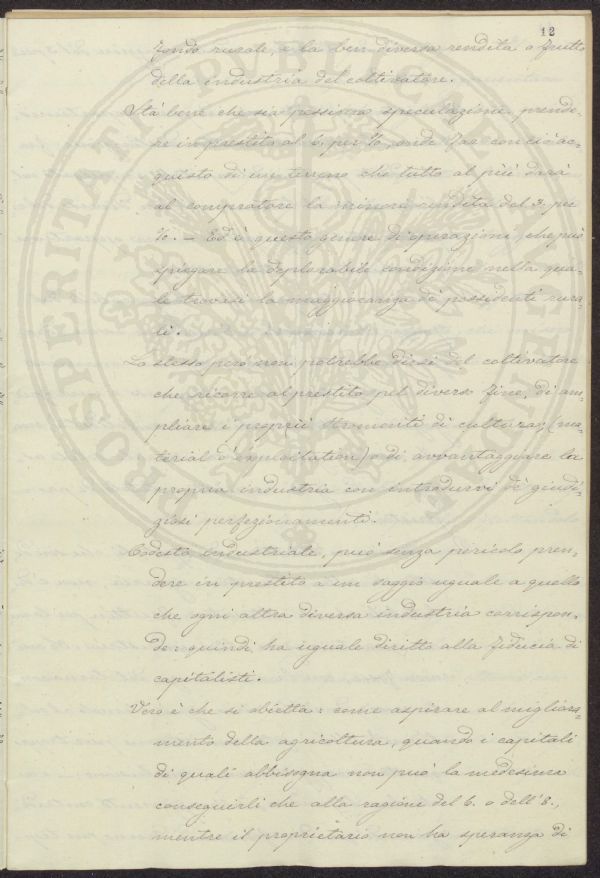 12
fondo rurale, e la ben diversa rendita o frutto
della industria del coltivatore.
Sta bene che sia pessima speculazione prende-
re in prestito al 6. per %, onde far con ciò ac-
quisto di un terreno che tutto al più darà
al compratore la minore rendita del 3. per
%. – Ed è questo genere di operazioni, che può
spiegare la deplorabile condizione nella qua-
le trovasi la maggioranza di possidenti rura-
li.
Lo stesso però non potrebbe dirsi del coltivatore
che ricorre al prestito pel diverso fine, di am-
pliare i proprii stromenti di cultura, (ma-
terial d'exploitation) o di avvantaggiare la
propria industria con introdurvi de' giudi-
ziosi perfezionamenti.
Codesto industriale, può senza pericolo pren-
dere in prestito a un saggio uguale a quello
che ogni altra diversa industria corrispon-
de: quindi ha uguale diritto alla fiducia di
capitalisti.
Vero è che si obietta: come aspirare al migliora-
mento della agricoltura, quando i capitali
di quali abbisogna non può la medesima
conseguirli che alla ragione del 6. o dell'8.,
mentre il proprietario non ha speranza di